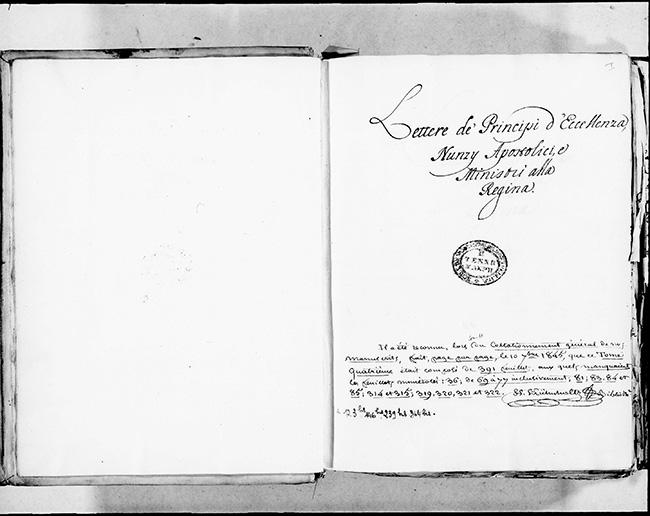 I
Lettere de' Principi d'Eccellenza,
Nunzy Apostolici, e
Ministri alla
Regina.
Il a été reconnu, lors du Collationnement général de nos
manuscrits, fait, page par page, le 10 7bre 1845, que ce Tome
Quatrième était composé de 391 feuillets, aux quels manquaient
les feuillets numérotés: 36; de 69 à 77 inclusivement; 81; 83. 84 et
85; 314 et 315; 319, 320, 321 et 322.